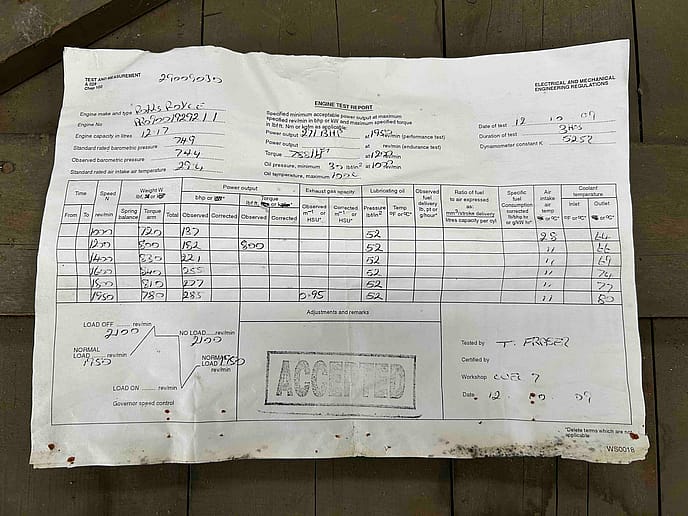 TEST AND MEASUREMENT
A 028
Chap 100
29009030
ELECTRICAL AND MECHANICAL
ENGINEERING REGULATIONS
ENGINE TEST REPORT
Engine make and type ROLLS ROYCE
Engine No
Engine capacity in litres 12.17
Standard rated barometric pressure 749
Observed barometric pressure 744
Standard rated air intake air temperature 29.4
Specified minimum acceptable power output at maximum
specified rev/min in bhp or kW and maximum specified torque
in lbf ft. Nm or kgfm as applicable:
Power output 271.3HP at 1950 rev/min (performance test)
Power output at rev/min (endurance test)
Torque at 1200 rev/min
Oil pressure, minimum 30 lbf/in² at 1000 rev/min
Oil temperature, maximum
Date of test 12 10 09
Duration of test 3HRS
Dynamometer constant K 5252
Time Speed N Weight W Power output Exhaust gas opacity Lubricating oil Observed fuel delivery lb, pt or g/hour* Ratio of fuel to air expressed as: mm³/stroke delivery litres capacity per cyl Specific Fuel Consumption corrected lb/bhp hr or g/kW hr* Air intake air temp °C or °F* Coolant temperature
From To rev/min Spring balance Torque arm Total bhp or kW* Observed Corrected Torque lbf ft, Observed Corrected Observed m⁻¹ or HSU* Corrected m⁻¹ or HSU* Pressure lbf/in² Temp °F or °C* Inlet °F or °C* Outlet °C or °F*
1000 720 137 52 28 64
1200 800 182 800 52 " 66
1400 830 221 52 " 69
1600 840 255 52 " 74
1800 810 277 52 " 77
1950 780 285 0.95 52 " 80
LOAD OFF ...... rev/min
2100
NO LOAD ...... rev/min
2100
NORMAL
LOAD ...... rev/min
1950
NORMAL
LOAD 1950
rev/min
LOAD ON ...... rev/min
Governor speed control
Adjustments and remarks
ACCEPTED
Tested by T. FRASER
Certified by
Workshop
Date 12 10 09
*Delete terms which are not
applicable
WS0018